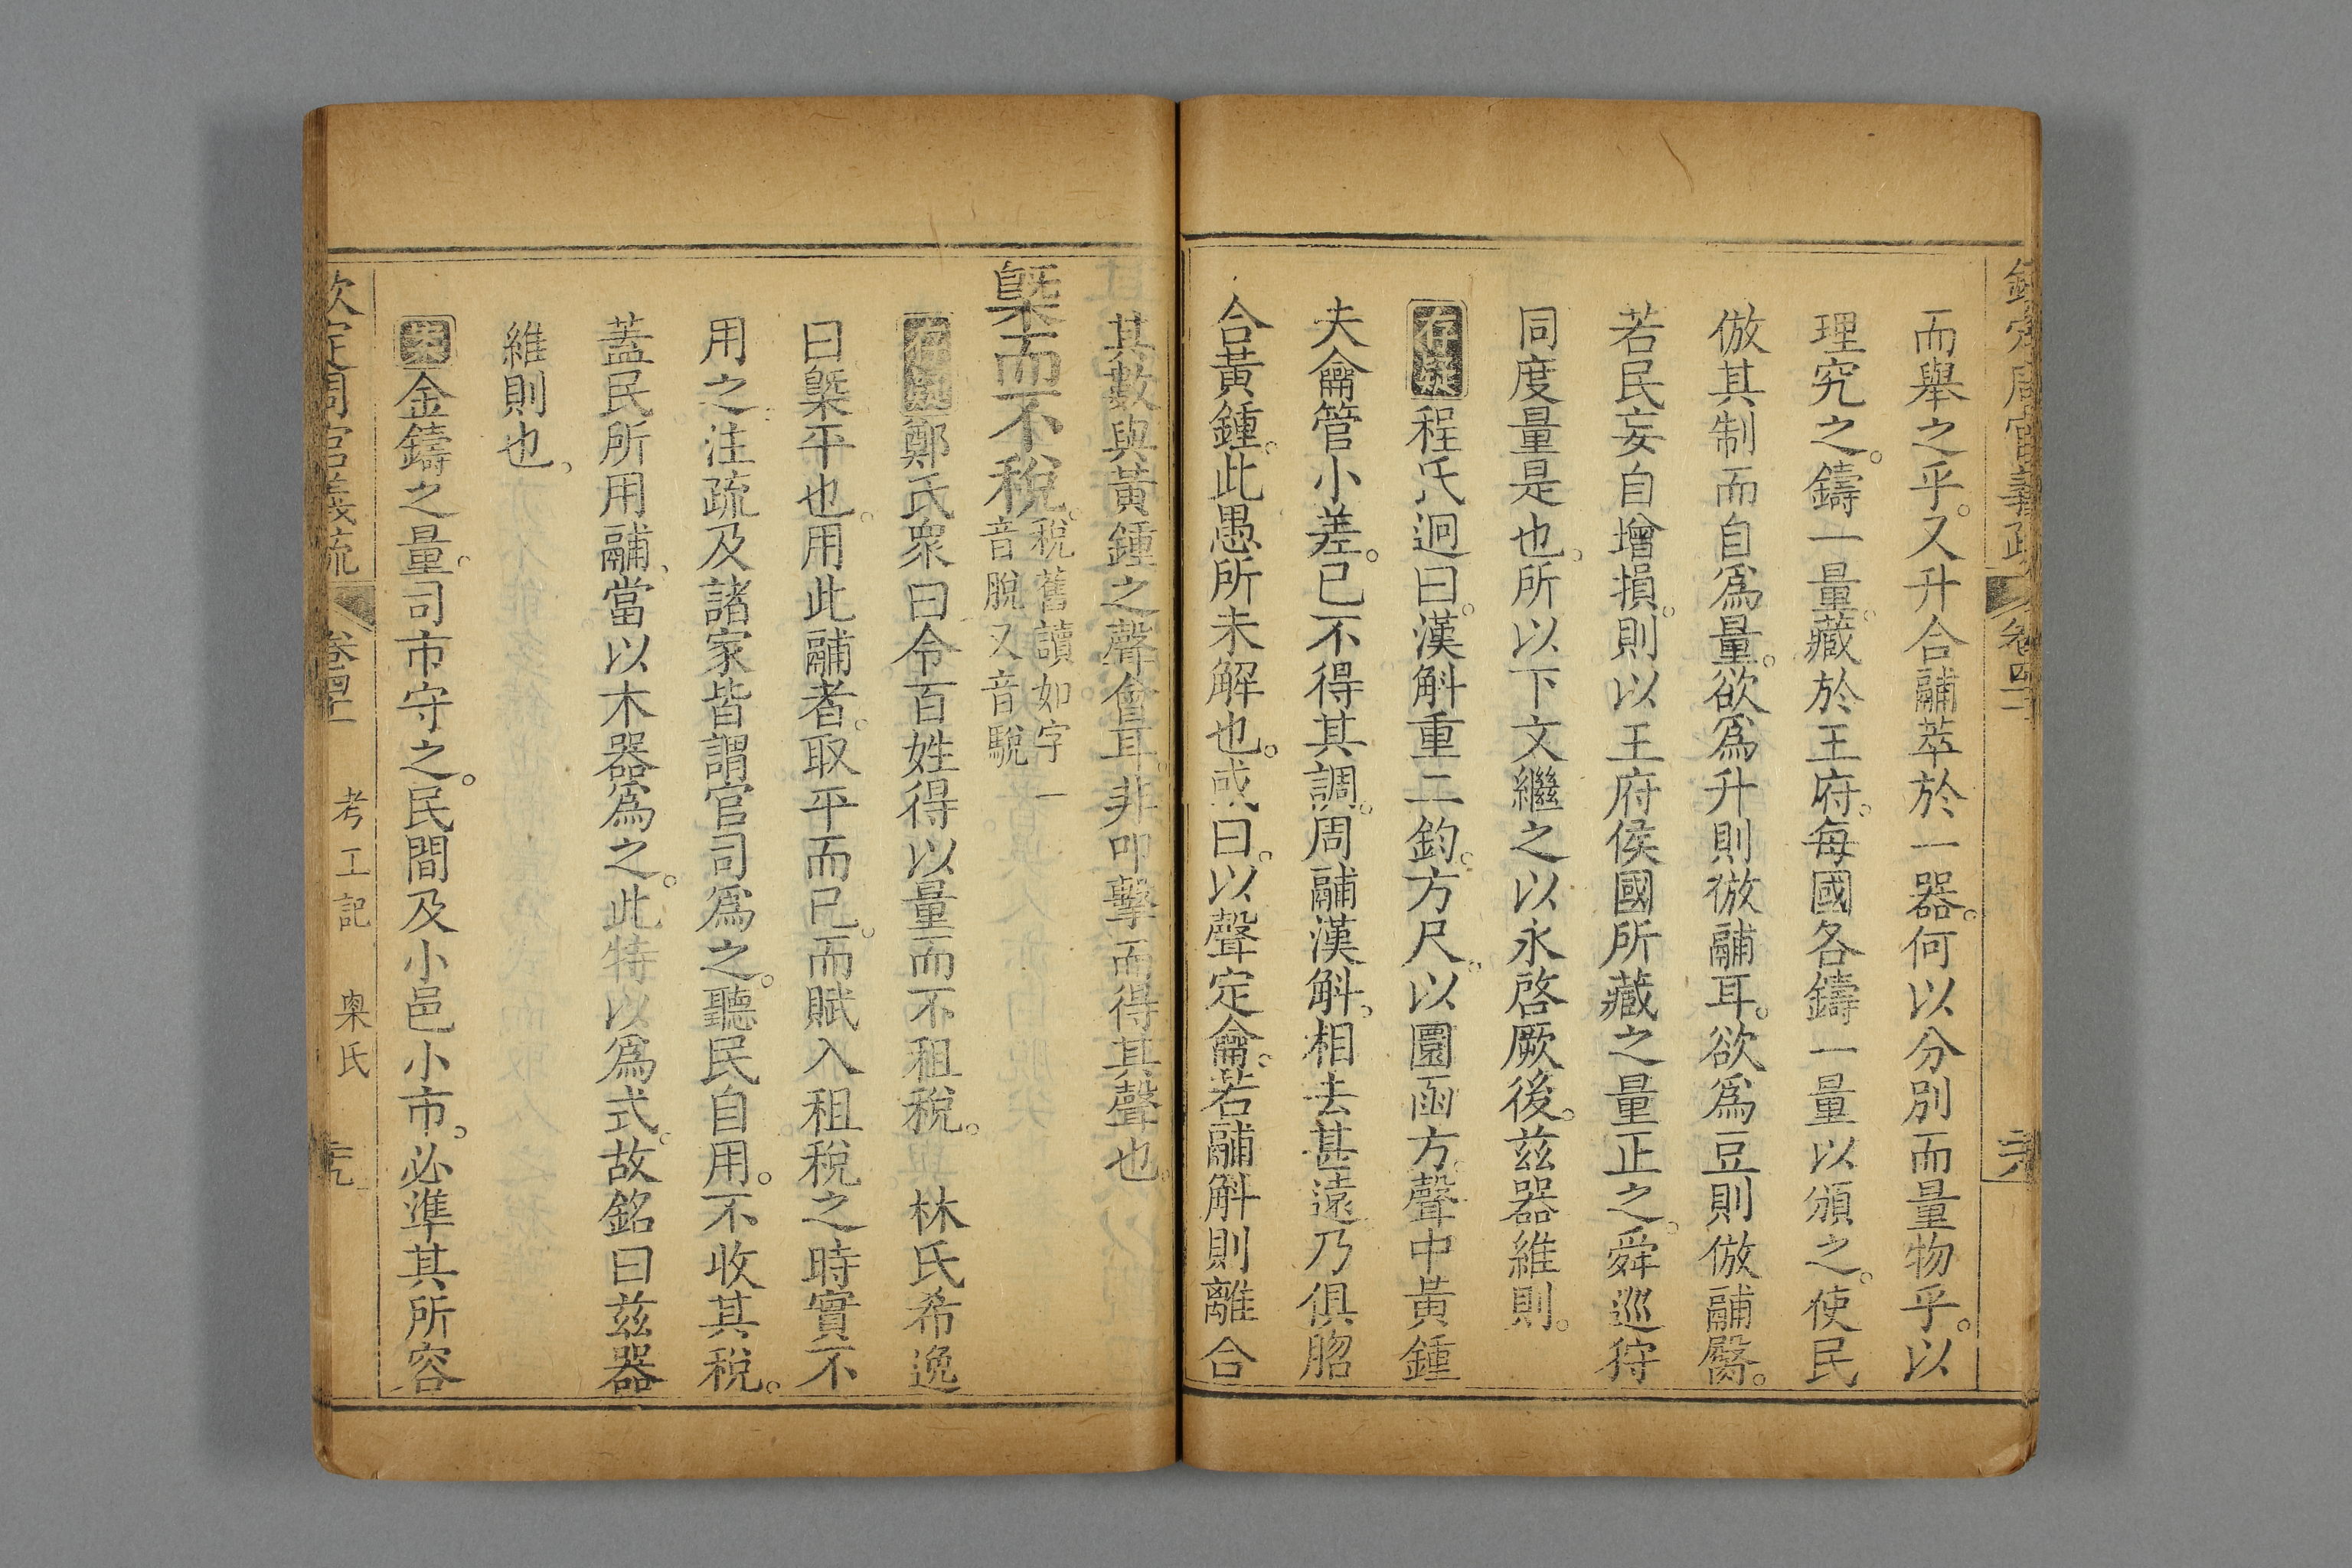 欽定周官義疏 卷四十二
而舉之乎。又升合鬴萃於一器。何以分別而量物乎。以
理究之。鑄一量。藏於王府。每國各鑄一量以頒之。使民
倣其制而自爲量。欲爲升則倣鬴耳。欲爲豆則倣鬴臋。
若民妄自增損。則以王府侯國所藏之量正之。舜巡狩
同度量是也。所以下文繼之以永啓厥後。茲器維則。
存疑程氏迥曰。漢斛重二鈞。方尺。以圜函方。聲中黃鍾
夫龠管小差。已不得其調。周鬴漢斛。相去甚遠。乃俱脗
合黃鍾。此愚所未解也。或曰。以聲定龠。若鬴斛則離合
其數與黃鍾之聲會耳。非叩擊而得其聲也。
槩而不稅。稅舊讀如字一
音脫又音駾
存疑鄭氏衆曰令百姓得以量而不租稅。 林氏希逸
曰槩平也。用此鬴者。取平而已。而賦入租稅之時實不
用之。注疏及諸家皆謂官司爲之。聽民自用。不收其稅。
蓋民所用鬴、當以木器爲之。此特以爲式。故銘曰茲器
維則也。
金鑄之量。司市守之。民間及小邑小市。必準其所容
欽定周官義疏 卷四十二 考工記 㮚氏